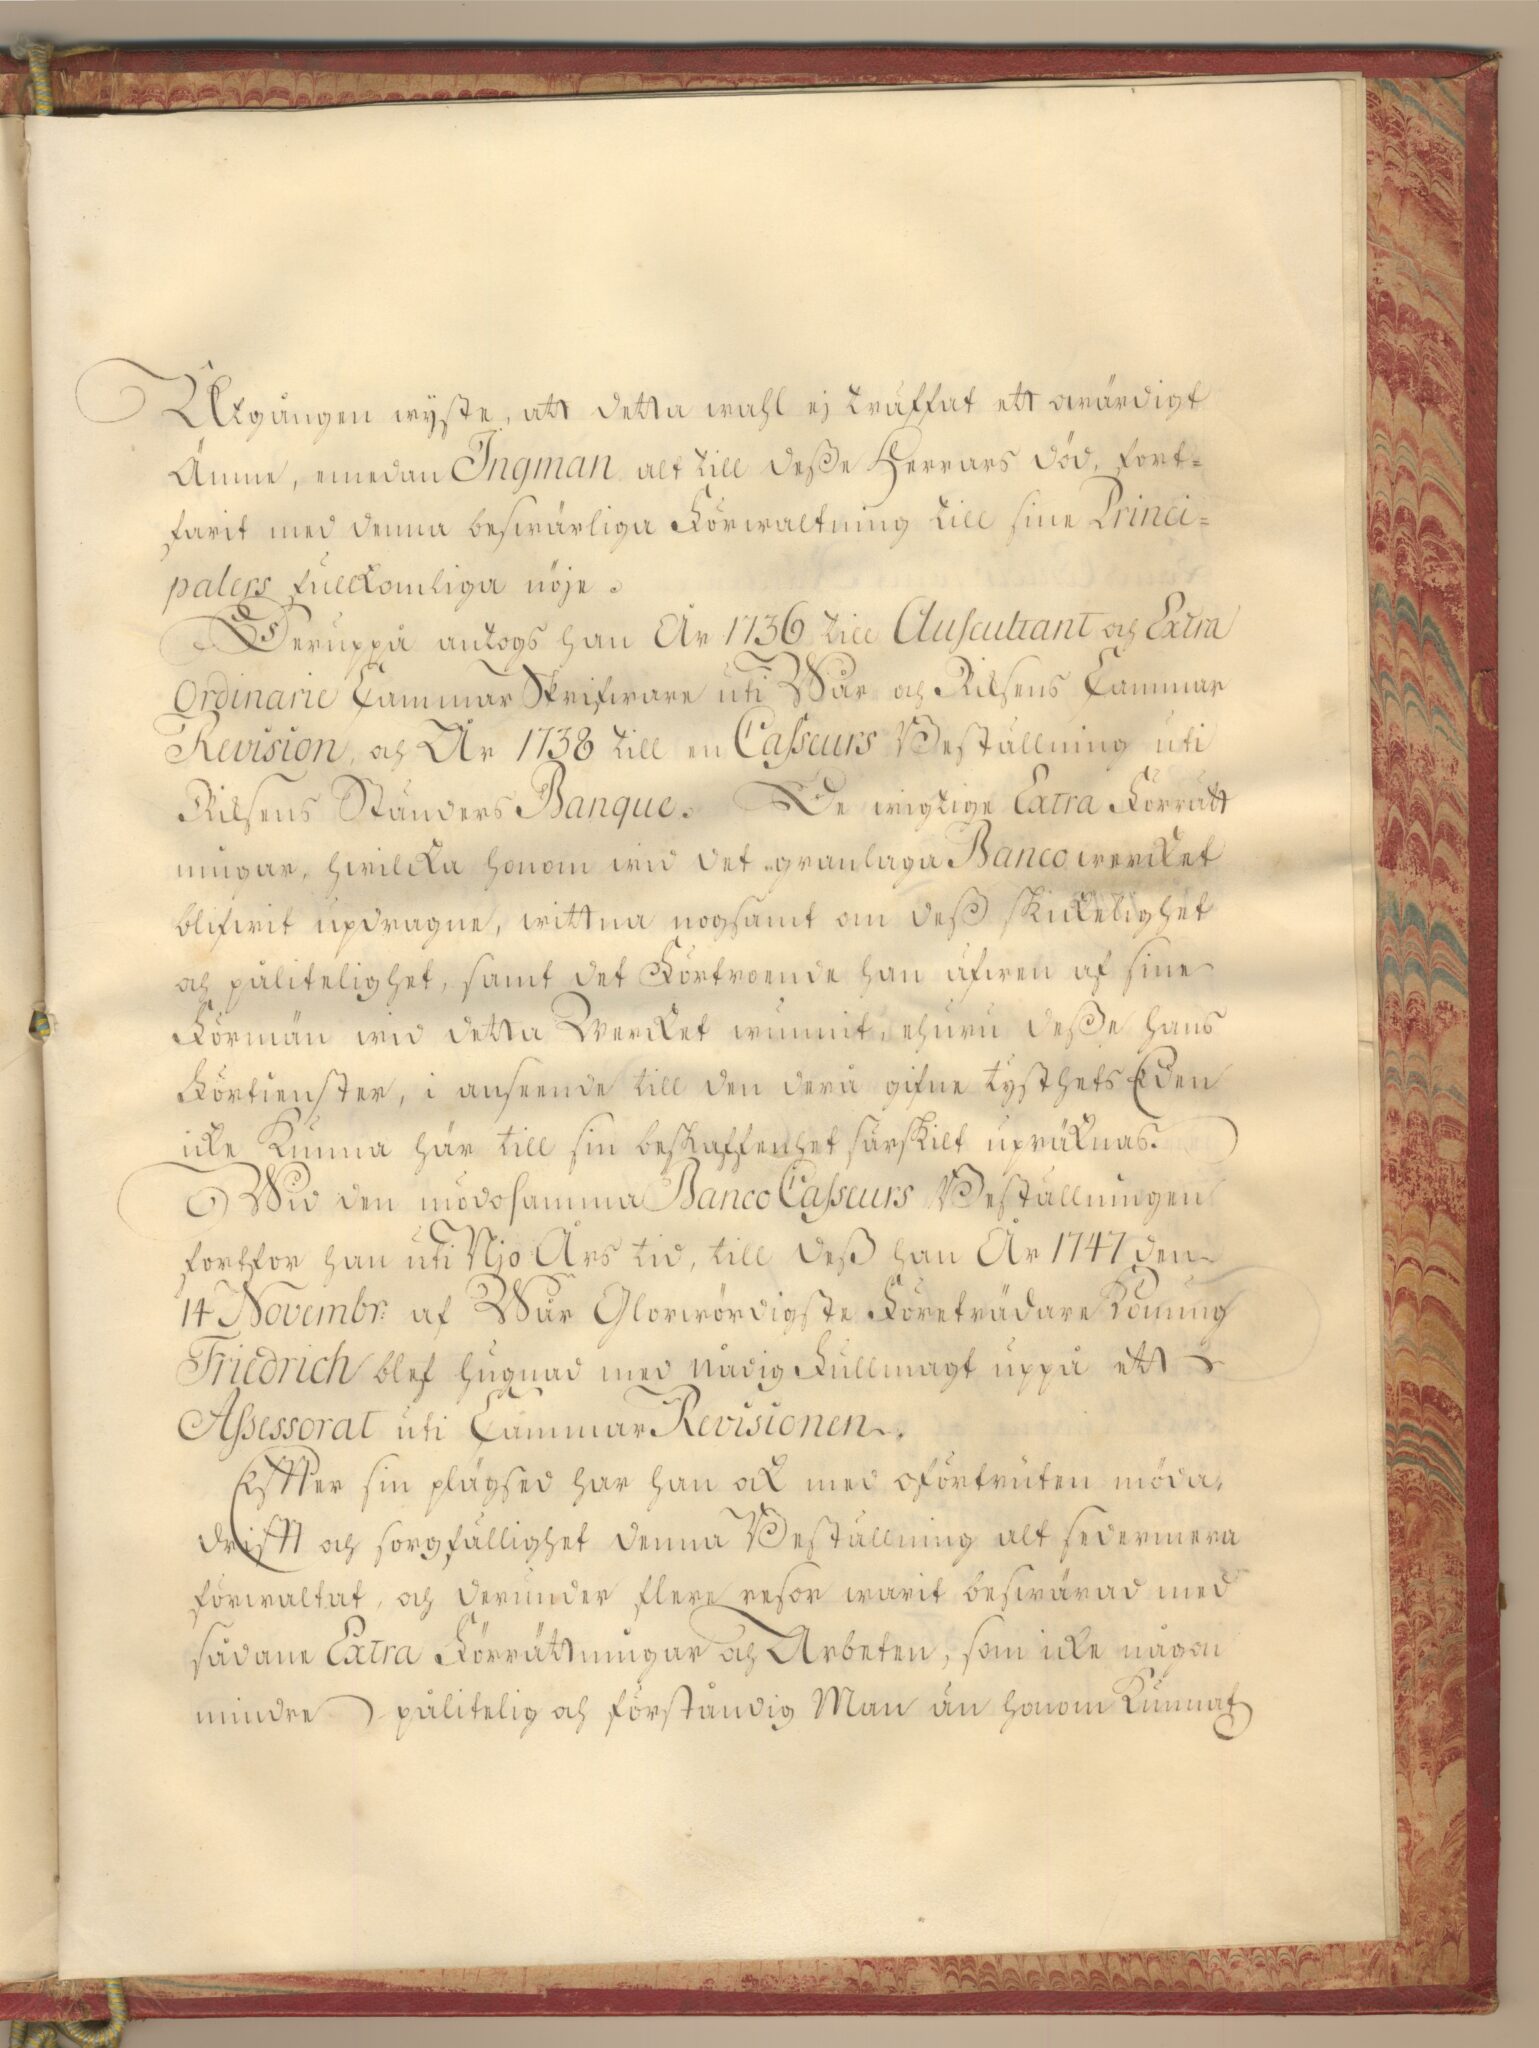 Utgången wyste, att detta wahl ej träffat ett owärdigt
Ämne, emedan Ingman alt till desze Herrars död, fort=
farit med denna beswärliga Förwaltning till sine Princi=
palers fullkomliga nöje.
Deruppå antogs han År 1736 till Auscultant och Extra
Ordinarie CammarSkrifware uti Wår och Riksens Cammar
Revision, och År 1738 till en Casseurs Beställning uti
Riksens Ständers Banque. De wigtige Extra Förrätt
ningar, hwilcka honom wid det granlaga Banco wercket
blifwit updragne, wittna nogsamt om desz skickelighet
och pålitelighet, samt det Förtroende han äfwen af sine
Förmän wid detta Wercket wunnit, ehuru desze hans
Förtienster, i anseende till den derå gifne tysthets Eden
icke kunna här till sin beskaffenhet särskilt upräknas.
Wid den mödosamma Banco Casseurs Beställningen
fortfor han uti Nio Års tid, till desz han År 1747 den
14 Novembr: af Wår Glorwördigste Företrädare Konung
Friedrich blef hugnad med nådig Fullmagt uppå ett
Assessorat uti Cammar Revisionen.
Efter sin plägsed har han ock med oförtruten möda,
drift och sorgfällighet denna Beställning alt sedermera
förwaltat, och derunder flere resor warit beswärad med
sådane Extra Förrättningar och Arbeten, som icke någon
mindre pålitelig och förståndig Man än honom kunnat